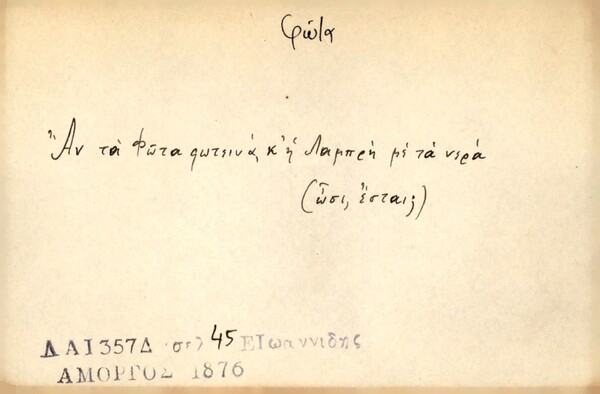 Φῶτα
Ἂν τὰ Φῶτα φωτεινά, κ' ἡ Λαμπρὴ μὲ τὰ νερά
(ὦσι, ἔσται;)
ΛΑ1357Δ σελ 45 ΕΙωαννιδης
ΑΜΟΡΓΟΣ 1876